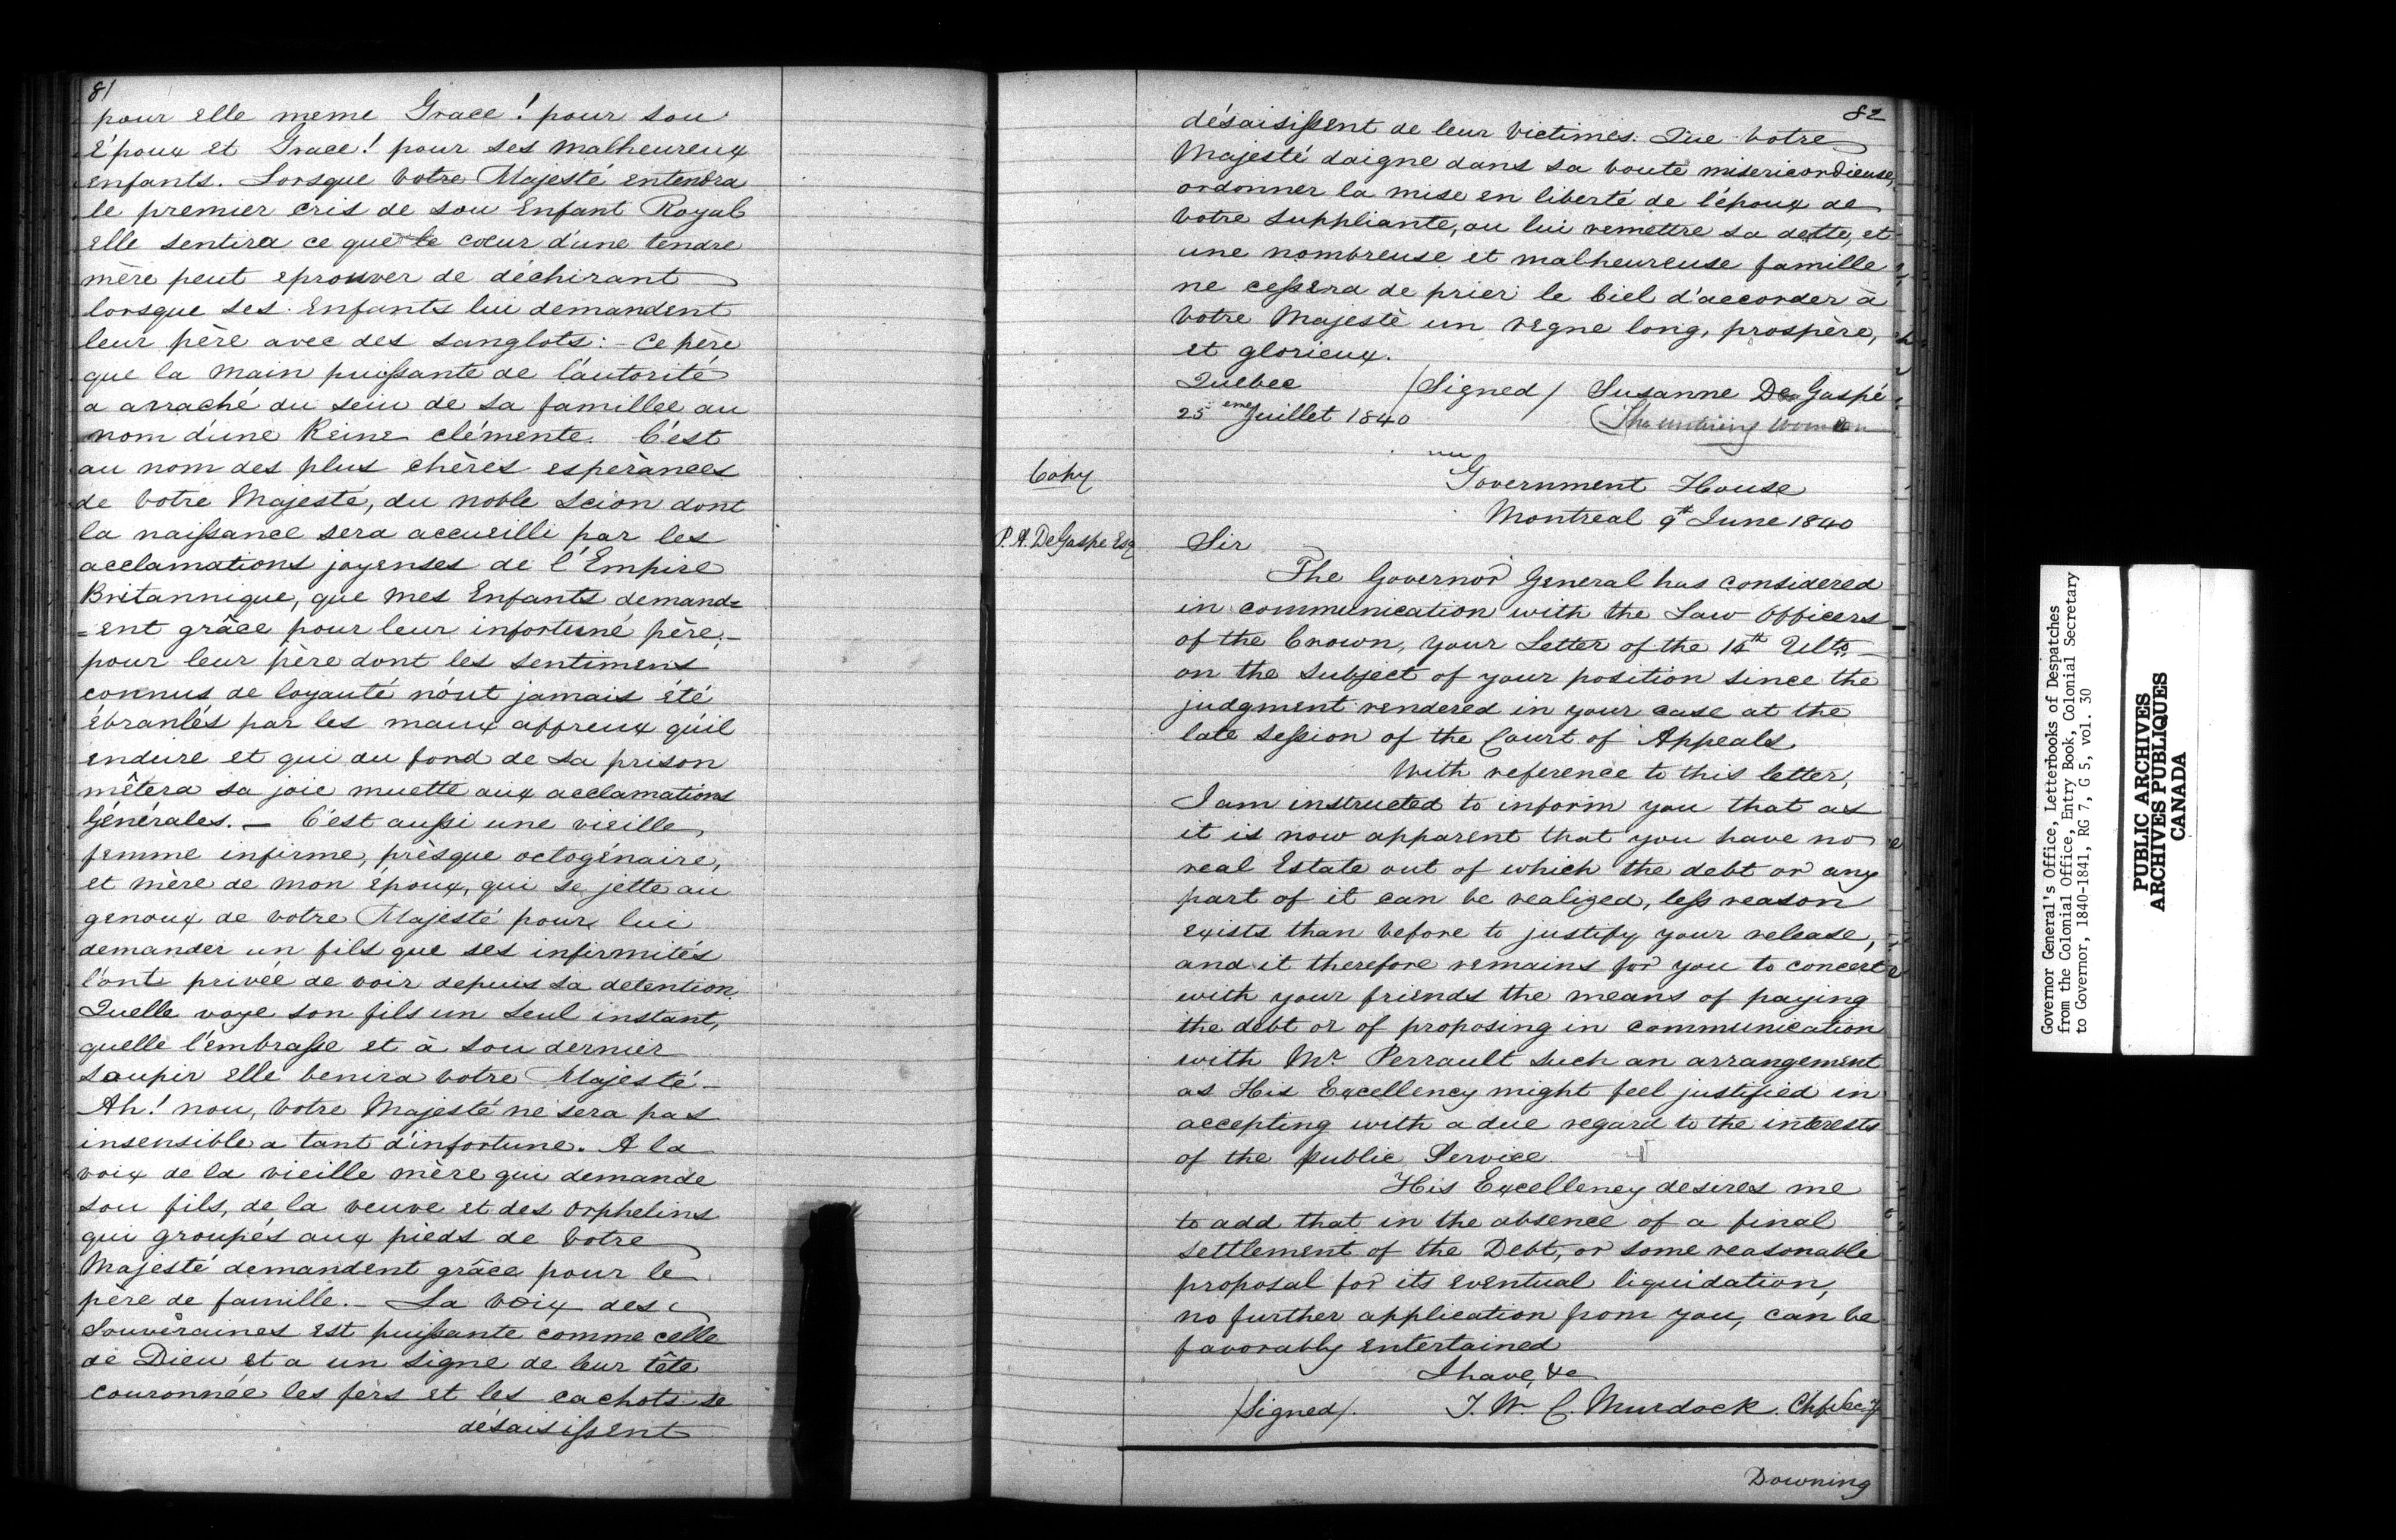 81
pour elle meme Grace! pour son
époux et Grace! pour ses malheureux
enfants. Lorsque Votre Majesté entendra
le premier cris de son Enfant Royal
elle sentira ce que le cœur d'une tendre
mère peut eprouver de déchirant
lorsque ses Enfants lui demandent
leur père avec des sanglots: - Ce père
que la main puissante de l'autorité
a arraché du sein de sa famillee au
nom d'une Reine clémente. C'est
au nom des plus chères espèrances
de Votre Majesté, du noble Scion dont
la naissance sera accueilli par les
acclamations joyenses de l'Empire
Britannique, que mes Enfants demand=
=ent grâce pour leur infortuné père, -
pour leur père dont les sentimens
connus de loyauté n'ont jamais été
ébranlés par les maux affreux qu'il
endure et qui du fond de sa prison
mêtera sa joie muette aux acclamations
Générales. - C'est aussi une vieille,
femme infirme, prèsque octogénaire,
et mère de mon époux, qui se jette au
genoux de votre Majesté pour lui
demander un fils que ses infirmités
l'ont privée de voir depuis sa detention.
Quelle voye son fils un seul instant,
quelle l'embrasse et à son dernier
soupir elle benira votre Majesté -
Ah! non, Votre Majesté ne sera pas
insensible a tant d'infortune. A la
voix de la vieille mère qui demande
son fils, de la veuve et des orphelins
qui groupés aux pieds de Votre
Majesté demandent grâce pour le
père de famille. - La voix des
Souvéraines est puissante comme celle
de Dieu et a un signe de leur tête
couronnée les fers et les cachots se
désaisissent
82
désaisissent de leur victimes. Que Votre
Majesté daigne dans sa bouté misericordieuse,
ordonner la mise en liberté de l'époux de
votre suppliante, ou lui remettre sa dette, et
une nombreuse et malheureuse famille
ne cessera de prier le Ciel d'accorder à
Votre Majesté un regne long, prospère,
et glorieux.
Quebec /Signed/ Susanne De Gaspé
25 eme Juillet 1840
Copy
Government House
Montreal 9th June 1840
P. A. DeGaspe Esq
Sir
The Governor General has considered
in communication with the Law Officers
of the Crown, your Letter of the Ulto
on the subject of your position since the
judgment rendered in your case at the
late Session of the Court of Appeals.
With reference to this letter,
I am instructed to inform you that as
it is now apparent that you have no
real Estate out of which the debt or any
part of it can be realized, less reason
exists than before to justify your release,
and it therefore remains for you to concert
with your friends the means of paying
the debt or of proposing in communication
with Mr Perrault such an arrangement
as His Excellency might feel justified in
accepting with a due regard to the interests
of the public Service.
His Excellency desires me
to add that in the absence of a final
settlement of the Debt, or some reasonable
proposal for its eventual liquidation,
no further application from you, can be
favorably entertained
I have, &c
/Signed/. T. W. C. Murdock. Chf Secy
Downing
Governor General's Office, Letterbooks of Despatches
from the Colonial Office, Entry Book, Colonial Secretary
to Governor, 1840-1841, RG 7, G 5, vol. 30
PUBLIC ARCHIVES
ARCHIVES PUBLIQUES
CANADA